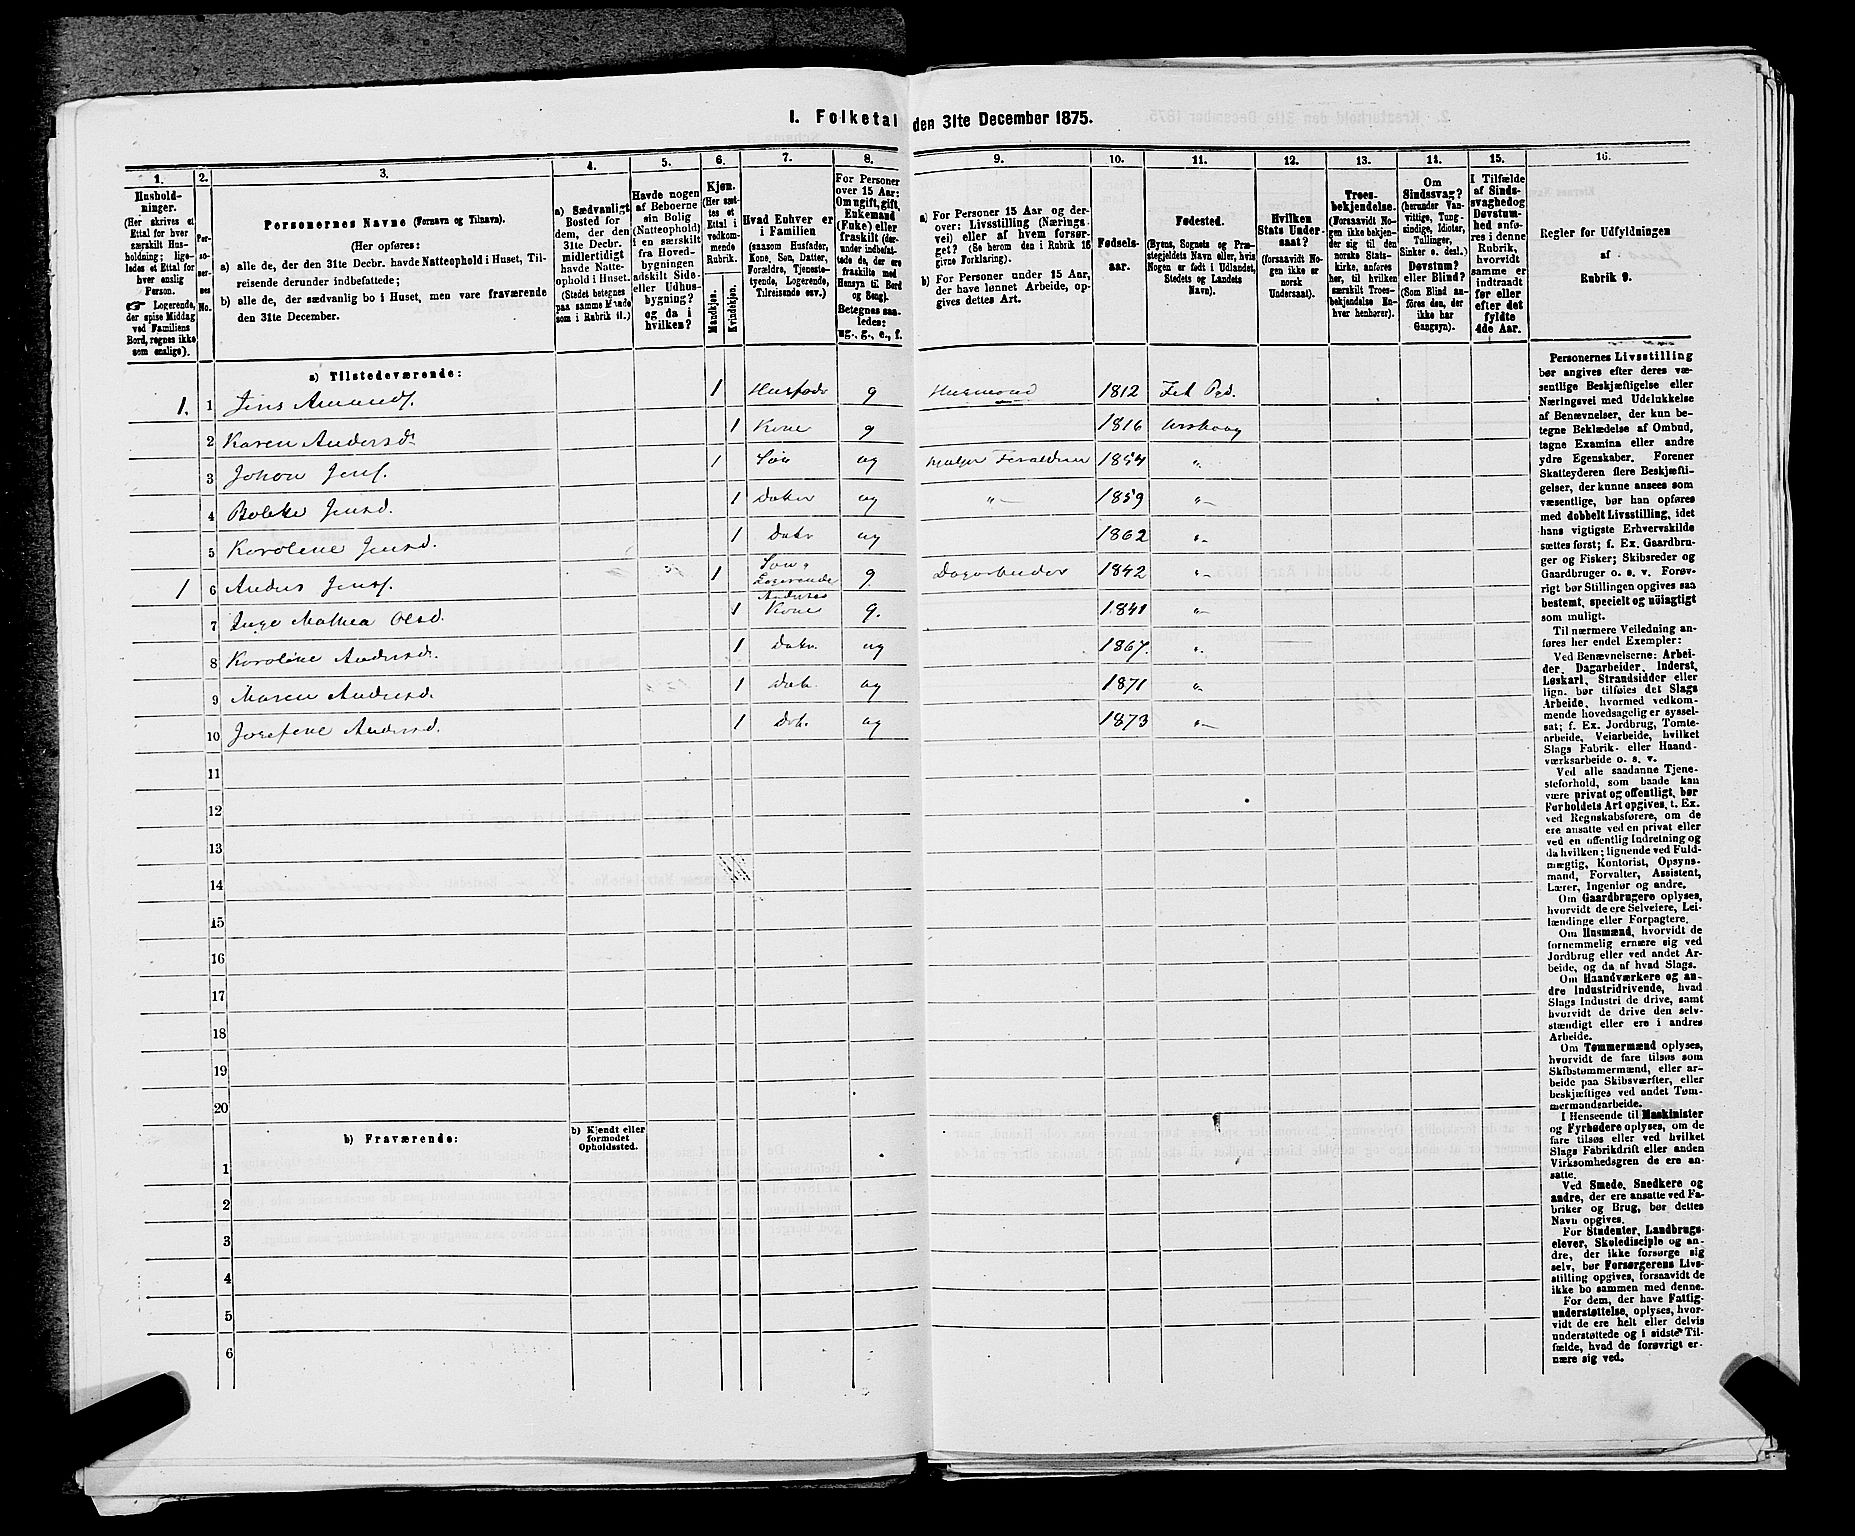 I. Folketal den 31te December 1875.
1. 2. 3. 4. 5. 6. 7. 8. 9. 10. 11. 12. 13. 14. 15. 16.
Hushold-
ninger.
(Her skrives et
Ettal for hver
særskilt Hus-
holdning; lige-
ledes et Ettal for
hver enslig
Person.
☞ Logerende,
der spise Middag
ved Familiens
Bord, regnes ikke
som enslige).
Per-
so-
ner-
nes
No.
Personernes Navne (Fornavn og Tilnavn).
(Her opføres:
a) alle de, der den 31te Decbr. havde Natteophold i Huset, Til-
reisende derunder indbefattede;
b) alle de, der sædvanlig bo i Huset, men vare fraværende
den 31te December.
a) Sædvanligt
Bosted for
dem, der den
31te Decbr.
midlertidigt
havde Natte-
ophold i Huset.
(Stedet betegnes
paa samme Maade
som i Rubrik 11.)
Havde nogen
af Beboerne
sin Bolig
(Natteophold)
i en særskilt
fra Hoved-
bygningen
adskilt Side-
eller Udhus-
bygning?
og da i
hvilken?
Kjøn.
(Her sæt-
tes et
Ettal i
vedkom-
mende
Rubrik.
Mandkjøn.
Kvindekjøn.
Hvad Enhver er
i Familien
(saasom Husfader,
Kone, Søn, Datter,
Forældre, Tjeneste-
tyende, Logerende,
Tilreisende osv.)
For Personer
over 15 Aar:
Om ugift, gift,
Enkemand
(Enke) eller
fraskilt (der-
under indbefat-
tede de, der ere
fraskilte med
Hensyn til Bord
og Seng).
Betegnes saa-
ledes:
ug., g., e., f.
a) For Personer 15 Aar og der-
over: Livsstilling (Nærings-
vei) eller af hvem forsør-
get? (Se herom den i Rubrik 16
givne Forklaring).
b) For Personer under 15 Aar,
der have lønnet Arbeide, op-
gives dettes Art.
Fødsels-
aar.
Fødested.
(Byens, Sognets og Præ-
stegjeldets Navn eller, hvis
Nogen er født i Udlandet,
Stedets og Landets
Navn).
Hvilken
Stats Under-
saat?
(forsaavidt No-
gen ikke er
norsk
Undersaat).
Troes-
bekjendelse.
(Forsaavidt No-
gen ikke bekjen-
der sig til den
norske Stats-
kirke, anføres
her, til hvilken
særskilt Troes-
bekjendelse En-
hver henhører).
Om
Sindssvag?
(herunder Van-
vittige, Tung-
sindige, Idioter,
Tullinger,
Sinker o. desl.).
Døvstum?
eller Blind?
(Som Blind an-
føres den, der
ikke har
Gangsyn).
I Tilfælde
af Sinds-
svaghed og
Døvstum-
hed anfø-
res i denne
Rubrik,
hvorvidt
samme er
indtraadt
før eller
efter det
fyldte
4de Aar.
Regler for Udfyldningen
af
Rubrik 9.
a) Tilstedeværende:
1. 1 Jens Amunds. 1 Husfader g Husmand 1812 Fet Pgd.
2 Karen Andersd. 1 Kone g 1816 Urskoug
3 Johan Jens. 1 Søn ug Hjelper Foraldrene 1854 "
4 Bolette Jensd. 1 Datter ug " 1859 "
5 Karoline Jensd. 1 Datr ug 1862 "
1 6 Anders Jens. 1 Søn, Logerende g Dagarbeider 1842 "
7 Inge Mathea Olsd. 1 Anderses Kone g. 1841 "
8 Karoline Andersd. 1 Datr. ug 1867. "
9 Maren Andersd. 1 Dat. ug 1871 "
10 Josefine Andersd. 1 Dat. ug 1873 "
11
12
13
14
15
16
17
18
19
20
b) Fraværende: b) Kjendt eller
formodet
Opholdssted.
1
2
3
4
5
6
Personernes Livsstilling
bør angives efter deres væ-
sentlige Beskjæftigelse eller
Næringsvei med Udelukkelse
af Benævnelser, der kun be-
tegne Beklædelse af Ombud,
tagne Examina eller andre
ydre Egenskaber. Forener
Skatteyderen flere Beskjæfti-
gelser, der kunne ansees som
væsentlige, bør han opføres
med dobbelt Livsstilling, idet
hans vigtigste Erhvervskilde
sættes først; f. Ex. Gaardbru-
ger og Fisker; Skibsreder og
Gaardbruger o. s. v. Forøv-
rigt bør Stillingen opgives saa
bestemt, specielt og nöiagtigt
som muligt.
Til nærmere Veiledning an-
føres her endel Exempler:
Ved Benævnelserne: Arbei-
der, Dagarbeider, Inderst,
Løskarl, Strandsidder eller
lign. bør tilføies det Slags
Arbeide, hvormed vedkom-
mende hovedsagelig er syssel-
sat; f. Ex. Jordbrug, Tomte-
arbeide, Veiarbeide, hvilket
Slags Fabrik- eller Haand-
værksarbeide o. s. v.
Ved alle saadanne Tjene-
steforhold, som baade kan
være privat og offentligt, bør
Forholdets Art opgives, t. Ex.
ved Regnskabsførere, om de
ere ansatte ved en privat eller
ved en offentlig Indretning og
da hvilken; lignende ved Fuld-
mægtig, Kontorist, Opsyns-
mand, Forvalter, Assistent,
Lærer, Ingeniør og andre.
Om Gaardbrugere oplyses,
hvorvidt de ere Selveiere, Lei-
lændinge eller Forpagtere.
Om Husmænd, hvorvidt de
fornemmelig ernære sig ved
Jordbrug eller ved andet Ar-
beide, og da af hvad Slags.
Om Haandværkere og an-
dre Industridrivende, hvad
Slags Industri de drive, samt
hvorvidt de drive den selv-
stændigt eller ere i andres
Arbeide.
Om Tømmermænd oplyses,
hvorvidt de fare tilsøs som
Skibstømmermænd, eller ar-
beide paa Skibsværfter, eller
beskjæftiges ved andet Tøm-
mermandsarbeide.
I Henseende til Maskinister
og Fyrbødere oplyses, om de
fare tilsøs eller ved hvilket
Slags Fabrikdrift eller anden
Virksomhedsgren de ere an-
satte.
Ved Smede, Snedkere og
andre, der ere ansatte ved Fa-
briker og Brug, bør dettes
Navn opgives.
For Studenter, Landbrugs-
elever, Skoledisciple og an-
dre, der ikke forsørge sig
selv, bør Forsørgerens Livs-
stilling opgives, forsaavidt de
ikke bo sammen med denne.
For dem, der have Fattig-
understøttelse, oplyses, hvor-
vidt de ere helt eller delvis
understøttede og i sidste Til-
fælde, hvad de forøvrigt er-
nære sig ved.